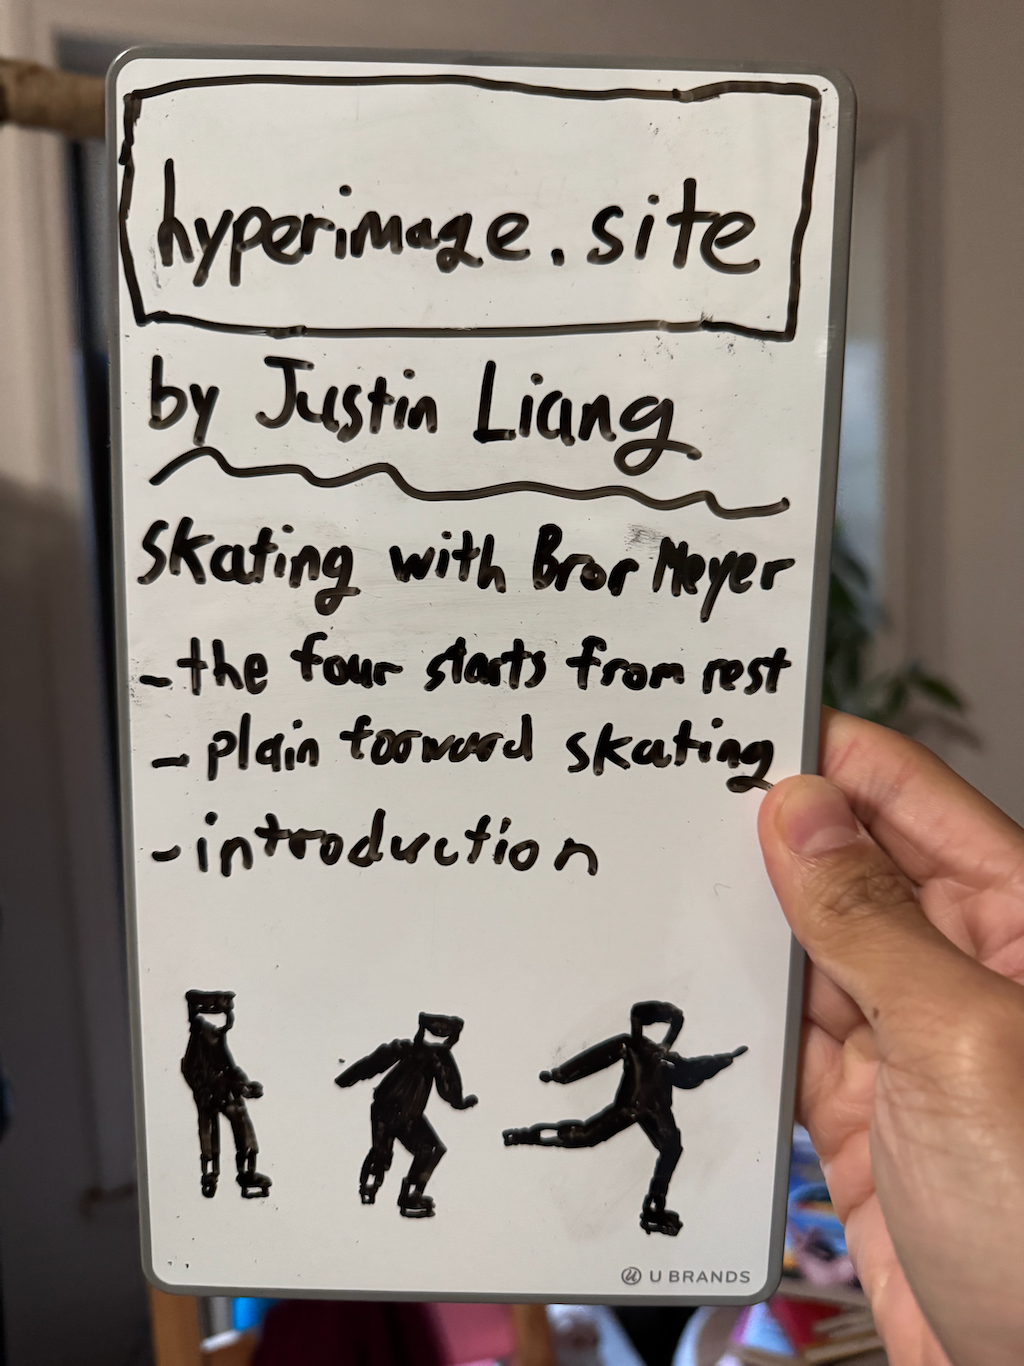 hyperimage.site
by Justin Liang
Skating with Bror Meyer
- the four starts from rest
- plain forward skating
- introduction
U BRANDS